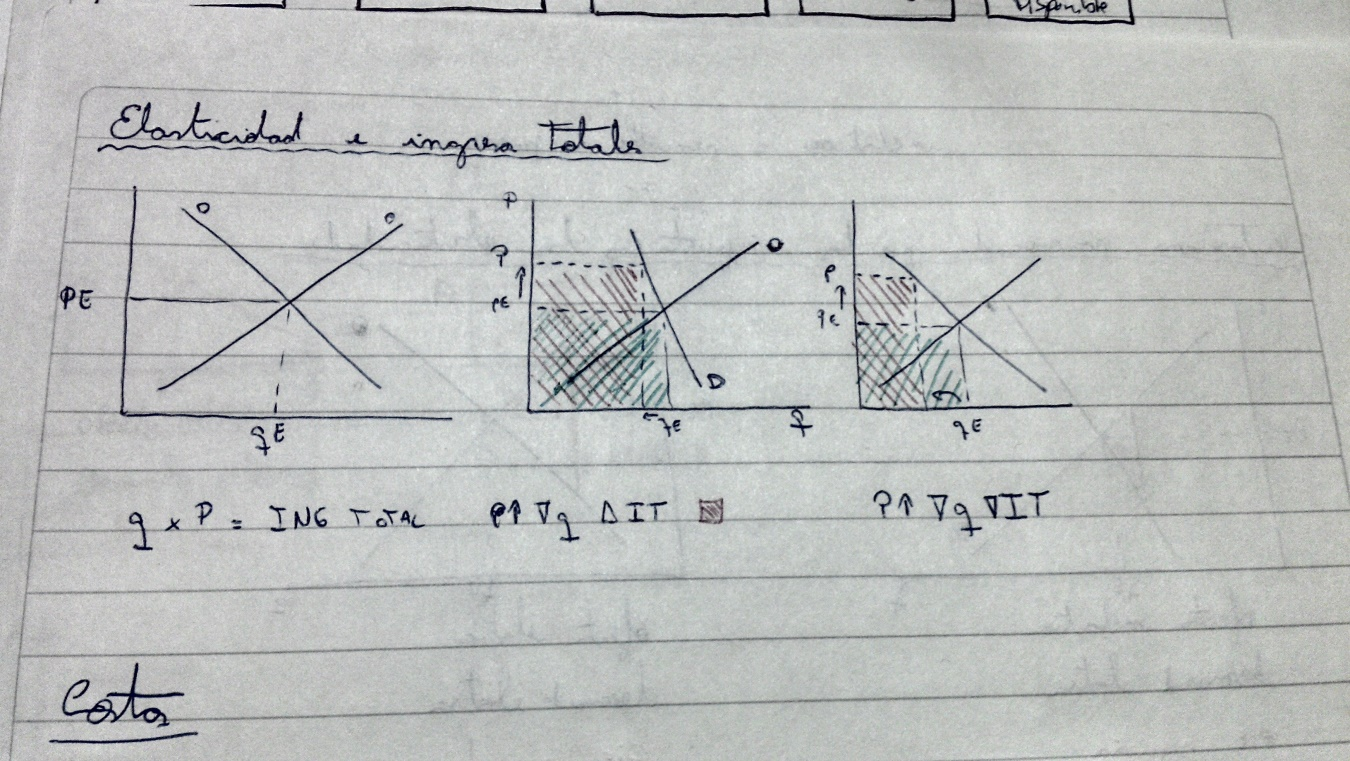 Disponible
Elasticidad e ingreso Totales
O
O
PE
qE
P
P
↑
PE
O
D
qE
q
P
↑
qE
qE
q x P = ING TOTAL
P↑ ∇q ΔIT
P↑ ∇q ∇IT
Costos